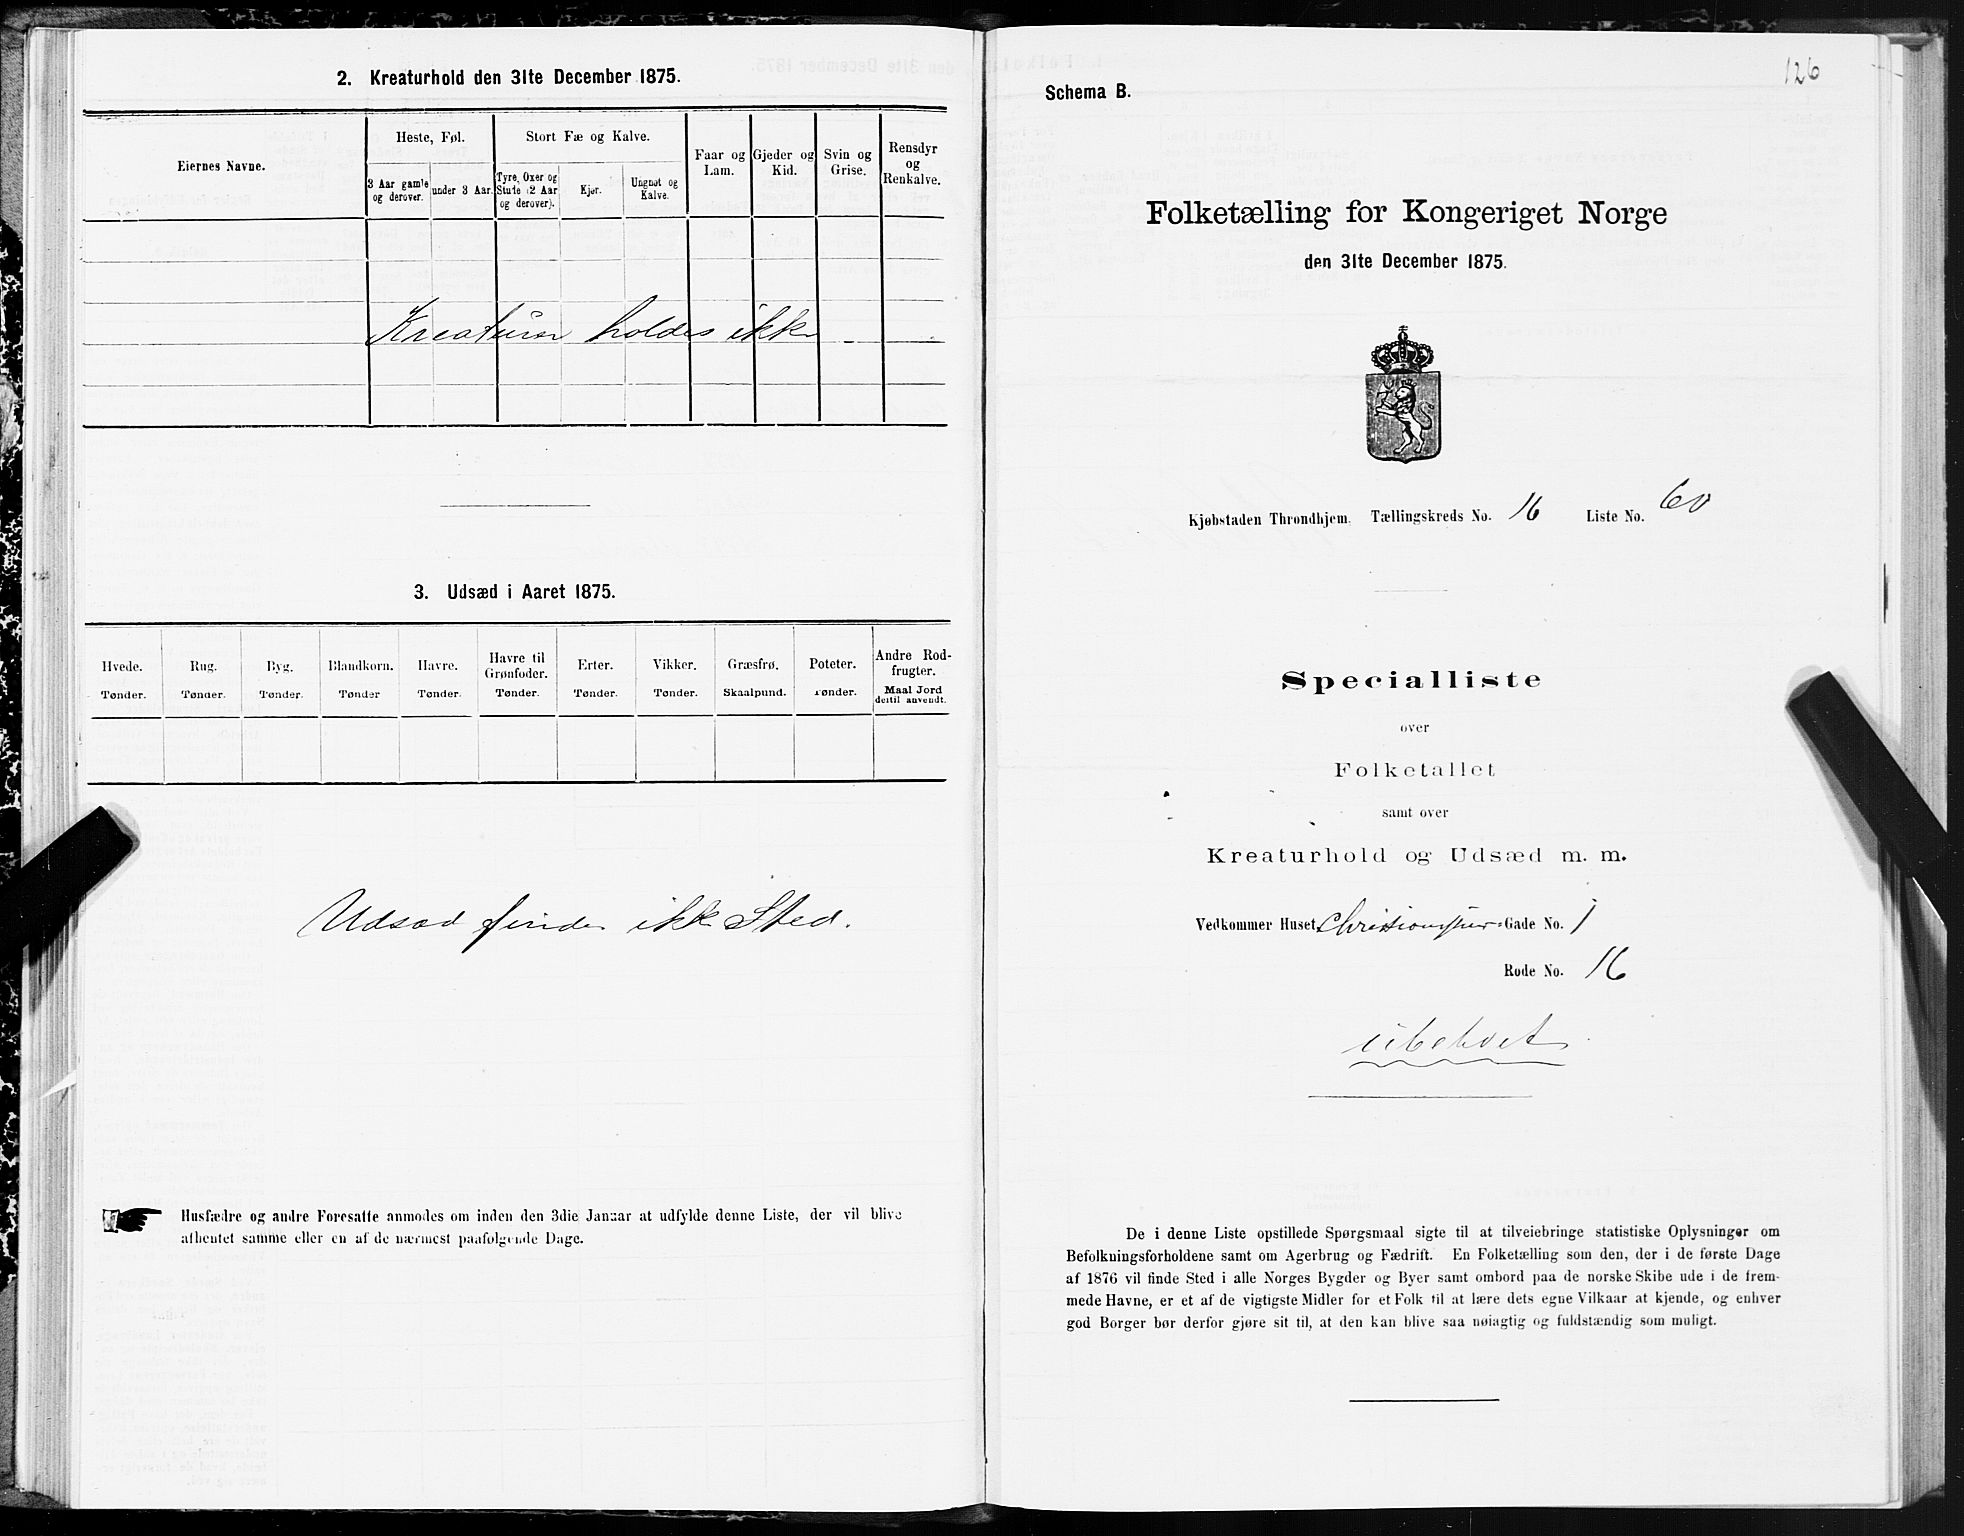 2. Kreaturhold den 31te December 1875.
Eiernes Navne.
Heste, Føl.
Stort Fæ og Kalve.
Faar og Lam.
Gjeder og Kid.
Svin og Grise.
Rensdyr og Renkalve.
3 Aar gamle og derover.
under 3 Aar.
Tyre, Oxer og Stude (2 Aar og derover).
Kjør.
Ungnøt og Kalve.
Kreaturer holdes ikke
3. Udsæd i Aaret 1875.
Hvede.
Rug.
Byg.
Blandkorn.
Havre.
Havre til Grønfoder.
Erter.
Vikker.
Græsfrø.
Poteter.
Andre Rodfrugter.
Tønder.
Tønder.
Tønder.
Tønder
Tønder.
Tønder.
Tønder.
Tønder.
Skaalpund.
Tønder.
Maal Jord dertil anvendt.
Udsæd finder ikke Sted.
Husfædre og andre Foresatte anmodes om inden den 3die Januar at udfylde denne Liste, der vil blive
afhentet samme eller en af de nærmest paafølgende Dage.
126
Schema B.
Folketælling for Kongeriget Norge
den 31te December 1875.
Kjøbstaden Throndhjem. Tællingskreds No. 16 Liste No. 60
Specialliste
over
Folketallet
samt over
Kreaturhold og Udsæd m. m.
Vedkommer Huset Gade No. 1
Rode No. 16
ubeboet
De i denne Liste opstillede Spørgsmaal sigte til at tilveiebringe statistiske Oplysninger om
Befolkningsforholdene samt om Agerbrug og Fædrift. En Folketælling som den, der i de første Dage
af 1876 vil finde Sted i alle Norges Bygder og Byer samt ombord paa de norske Skibe ude i de frem-
mede Havne, er et af de vigtigste Midler for et Folk til at lære dets egne Vilkaar at kjende, og enhver
god Borger bør derfor gjøre sit til, at den kan blive saa nøiagtig og fuldstændig som muligt.